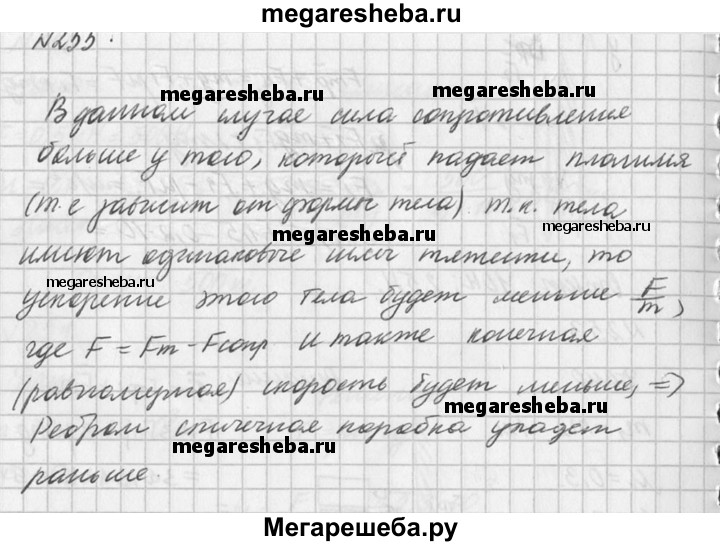 megaresheba.ru
N255.
megaresheba.ru megaresheba.ru
В данном случае сила сопротивления
больше у того, который падает плашмя
(т.е зависит от формы тела). т.к. тела
megaresheba.ru megaresheba.ru
имеют одинаковые силы тяжести, то
megaresheba.ru
ускорение этого тела будет меньше F/m,
где F = Fт - Fсопр и также конечная
(равномерная) скорость будет меньше, =>
megaresheba.ru
Ребром спичечная коробка упадет
megaresheba.ru
раньше.
Мегарешеба.ру